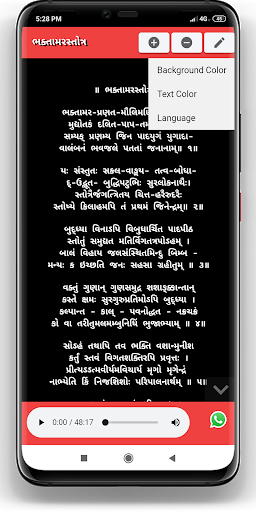 5:28 PM
4G
ભક્તામરસ્તોત્ર
Background Color
Text Color
Language
॥ ભક્તામરસ્તો
ભક્તામર-પ્રણત-મૌલિમણિ
મુદ્યોતકં દલિત-પાપ-ત
સમ્યક્ પ્રણમ્ય જિન પાદયુગં યુગાદા-
વાલંબનં ભવજલે પતતાં જનાનામ્॥ ૧॥
યઃ સંસ્તુતઃ સકલ-વાઙ્મય- તત્વ-બોધા-
દ્-ઉદ્ભૂત- બુદ્ધિપટુભિઃ સુરલોકનાથૈઃ।
સ્તોત્રૈર્જગત્ત્રિતય ચિત્ત-હરૈરુદરૈઃ
સ્તોષ્યે કિલાહમપિ તં પ્રથમં જિનેન્દ્રમ્॥ ૨॥
બુદ્ધ્યા વિનાઽપિ વિબુધાર્ચિત પાદપીઠ
સ્તોતું સમુદ્યત મતિર્વિગતત્રપોઽહમ્ ।
બાલં વિહાય જલસંસ્થિતમિન્દુ બિમ્બ -
મન્યઃ ક ઇચ્છતિ જનઃ સહસા ગ્રહીતુમ્ ॥ ૩॥
વક્તું ગુણાન્ ગુણસમુદ્ર શશાઙ્ક્કાન્તાન્
કસ્તે ક્ષમઃ સુરગુરુપ્રતિમોઽપિ બુદ્ધ્યા ।
કલ્પાન્ત - કાલ્ - પવનોદ્ધત - નક્રચક્રં
કો વા તરીતુમલમમ્બુનિધિં ભુજાભ્યામ્ ॥ ૪॥
સોઽહં તથાપિ તવ ભક્તિ વશાન્મુનીશ
કર્તું સ્તવં વિગતશક્તિરપિ પ્રવૃત્તઃ ।
પ્રીત્યઽઽત્મવીર્યમવિચાર્ય મૃગો મૃગેન્દ્રં
નાભ્યેતિ કિં નિજશિશોઃ પરિપાલનાર્થમ્ ॥ ૫॥
0:00 / 48:17